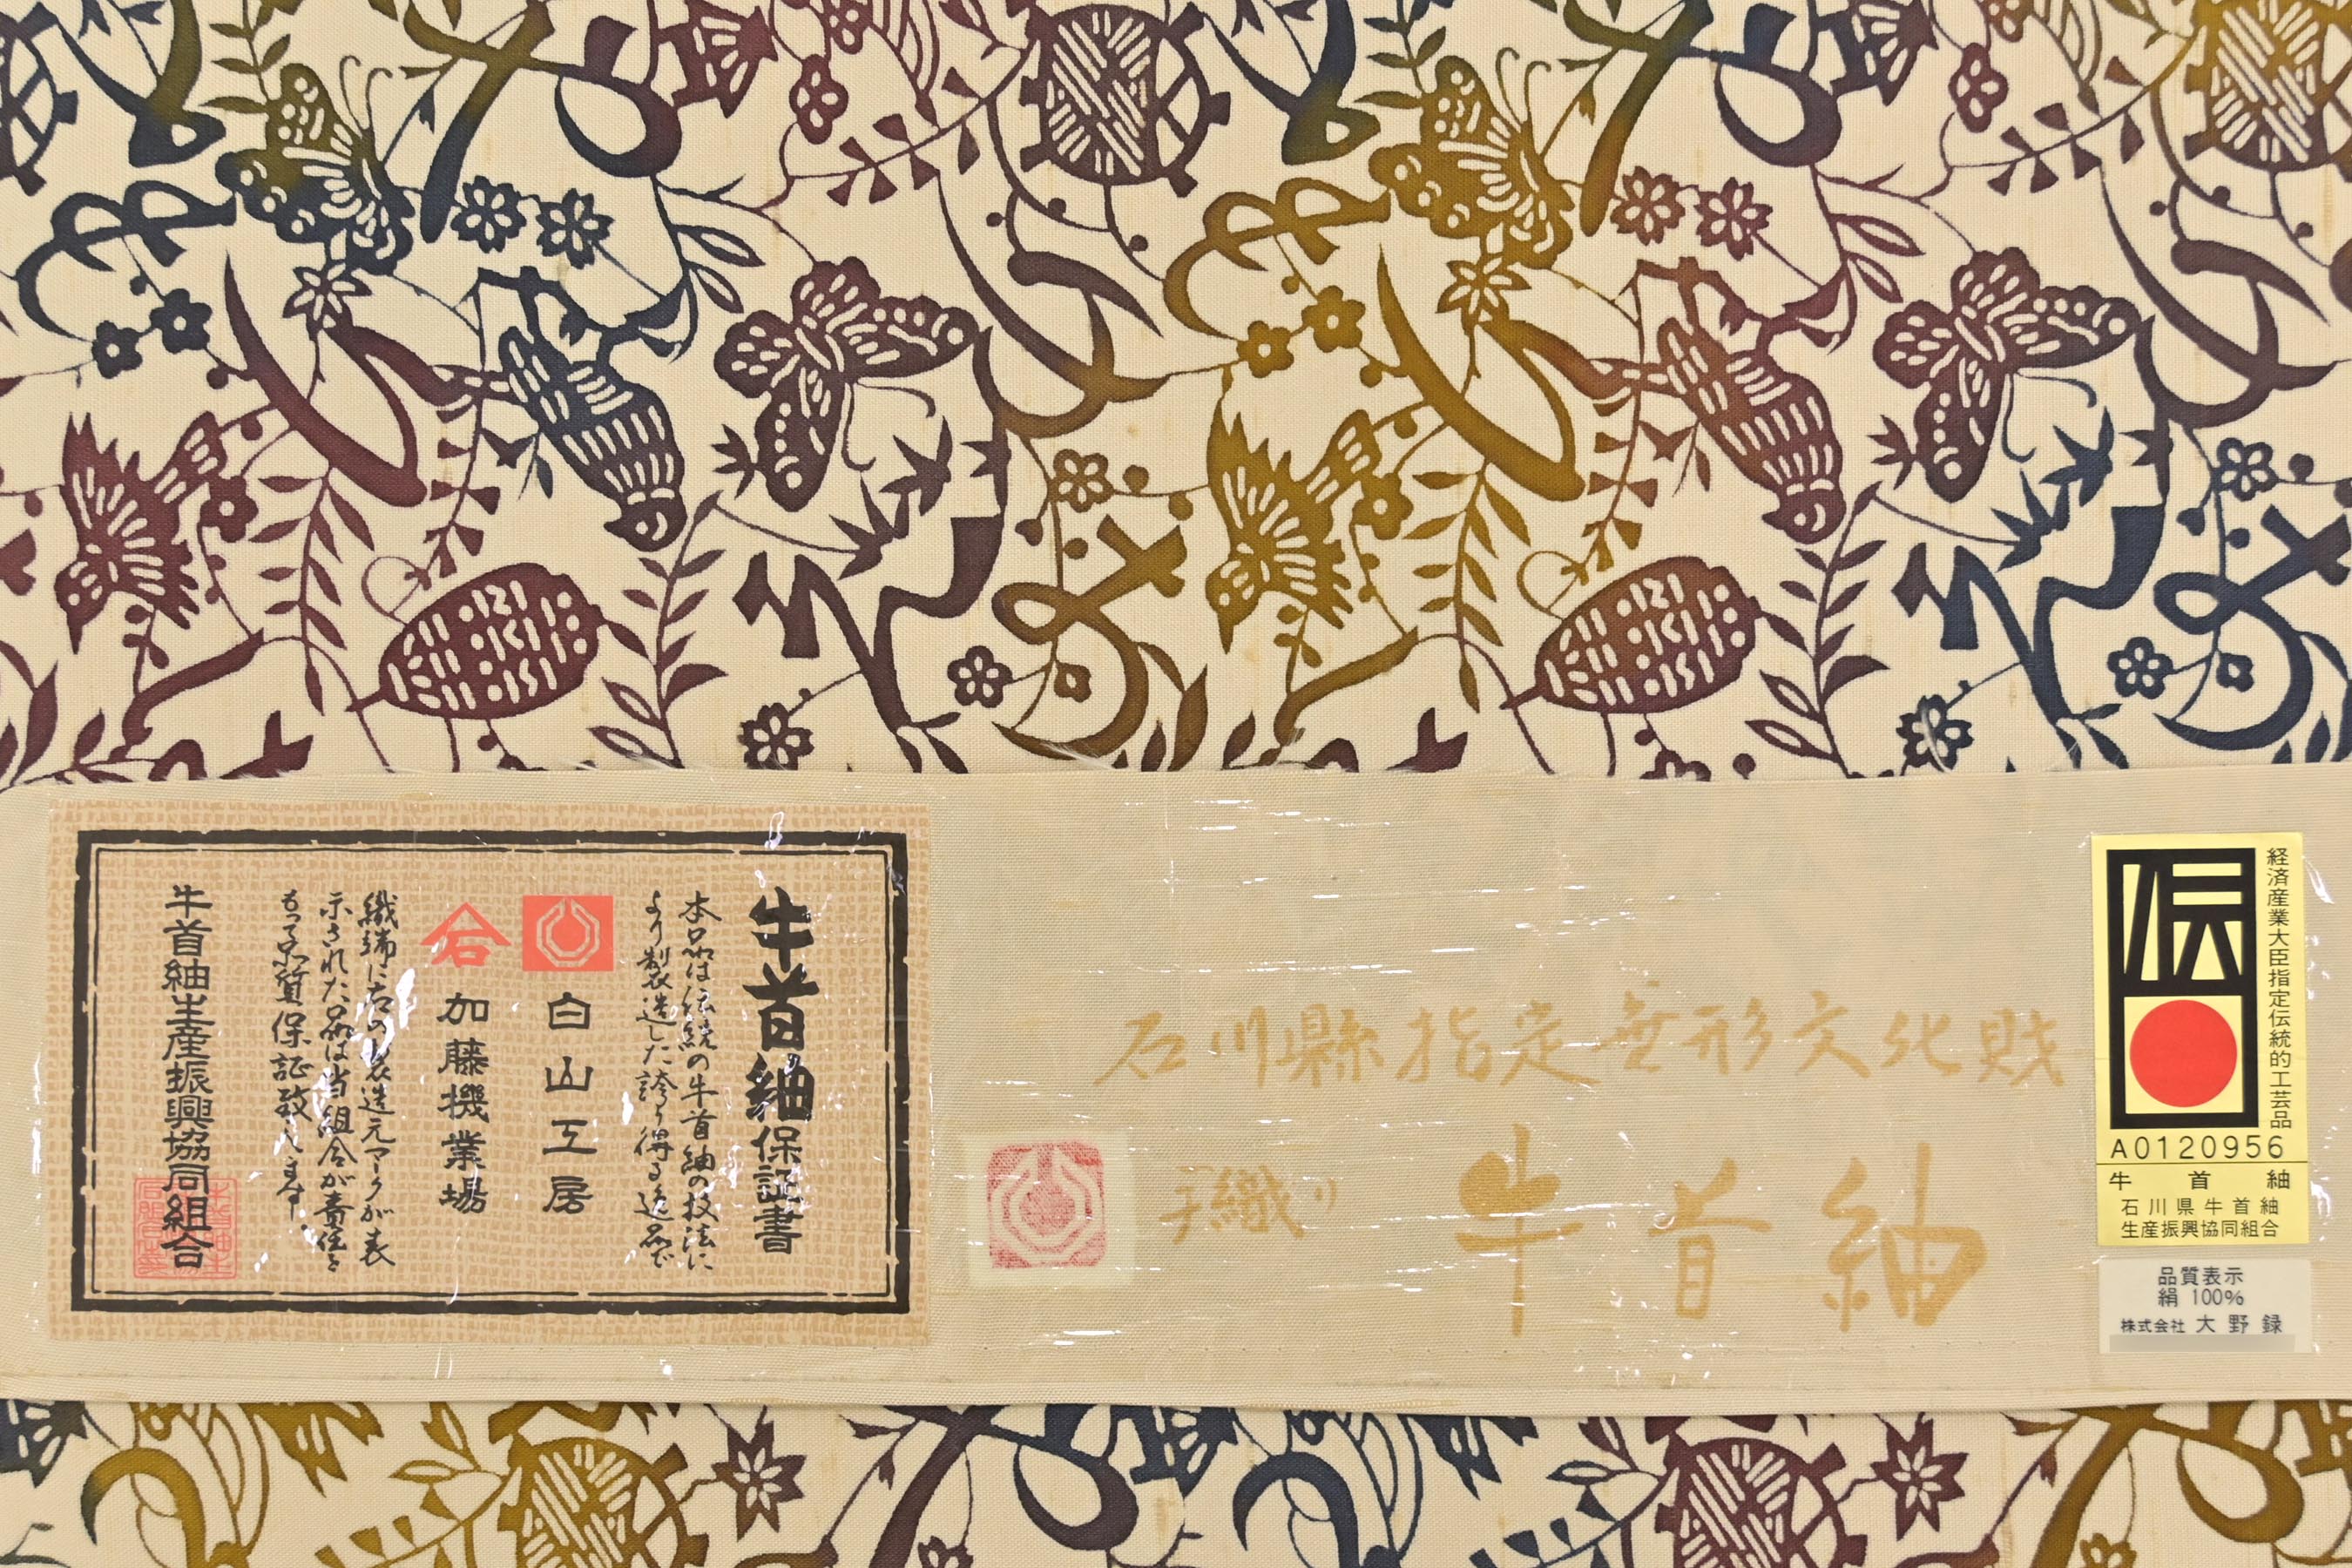 牛首紬保証書
本品は伝統の牛首紬の技法に
より製造した誇り得る逸品で
白山工房
加藤機業場
織端に右の製造元マークが表
示された品は当組合が責任を
もって品質保証致します。
牛首紬生産振興協同組合
石川縣指定無形文化財
手織り
牛首紬
経済産業大臣指定伝統的工芸品
伝
A0120956
牛首紬
石川県牛首紬
生産振興協同組合
品質表示
絹 100%
株式会社 大野録